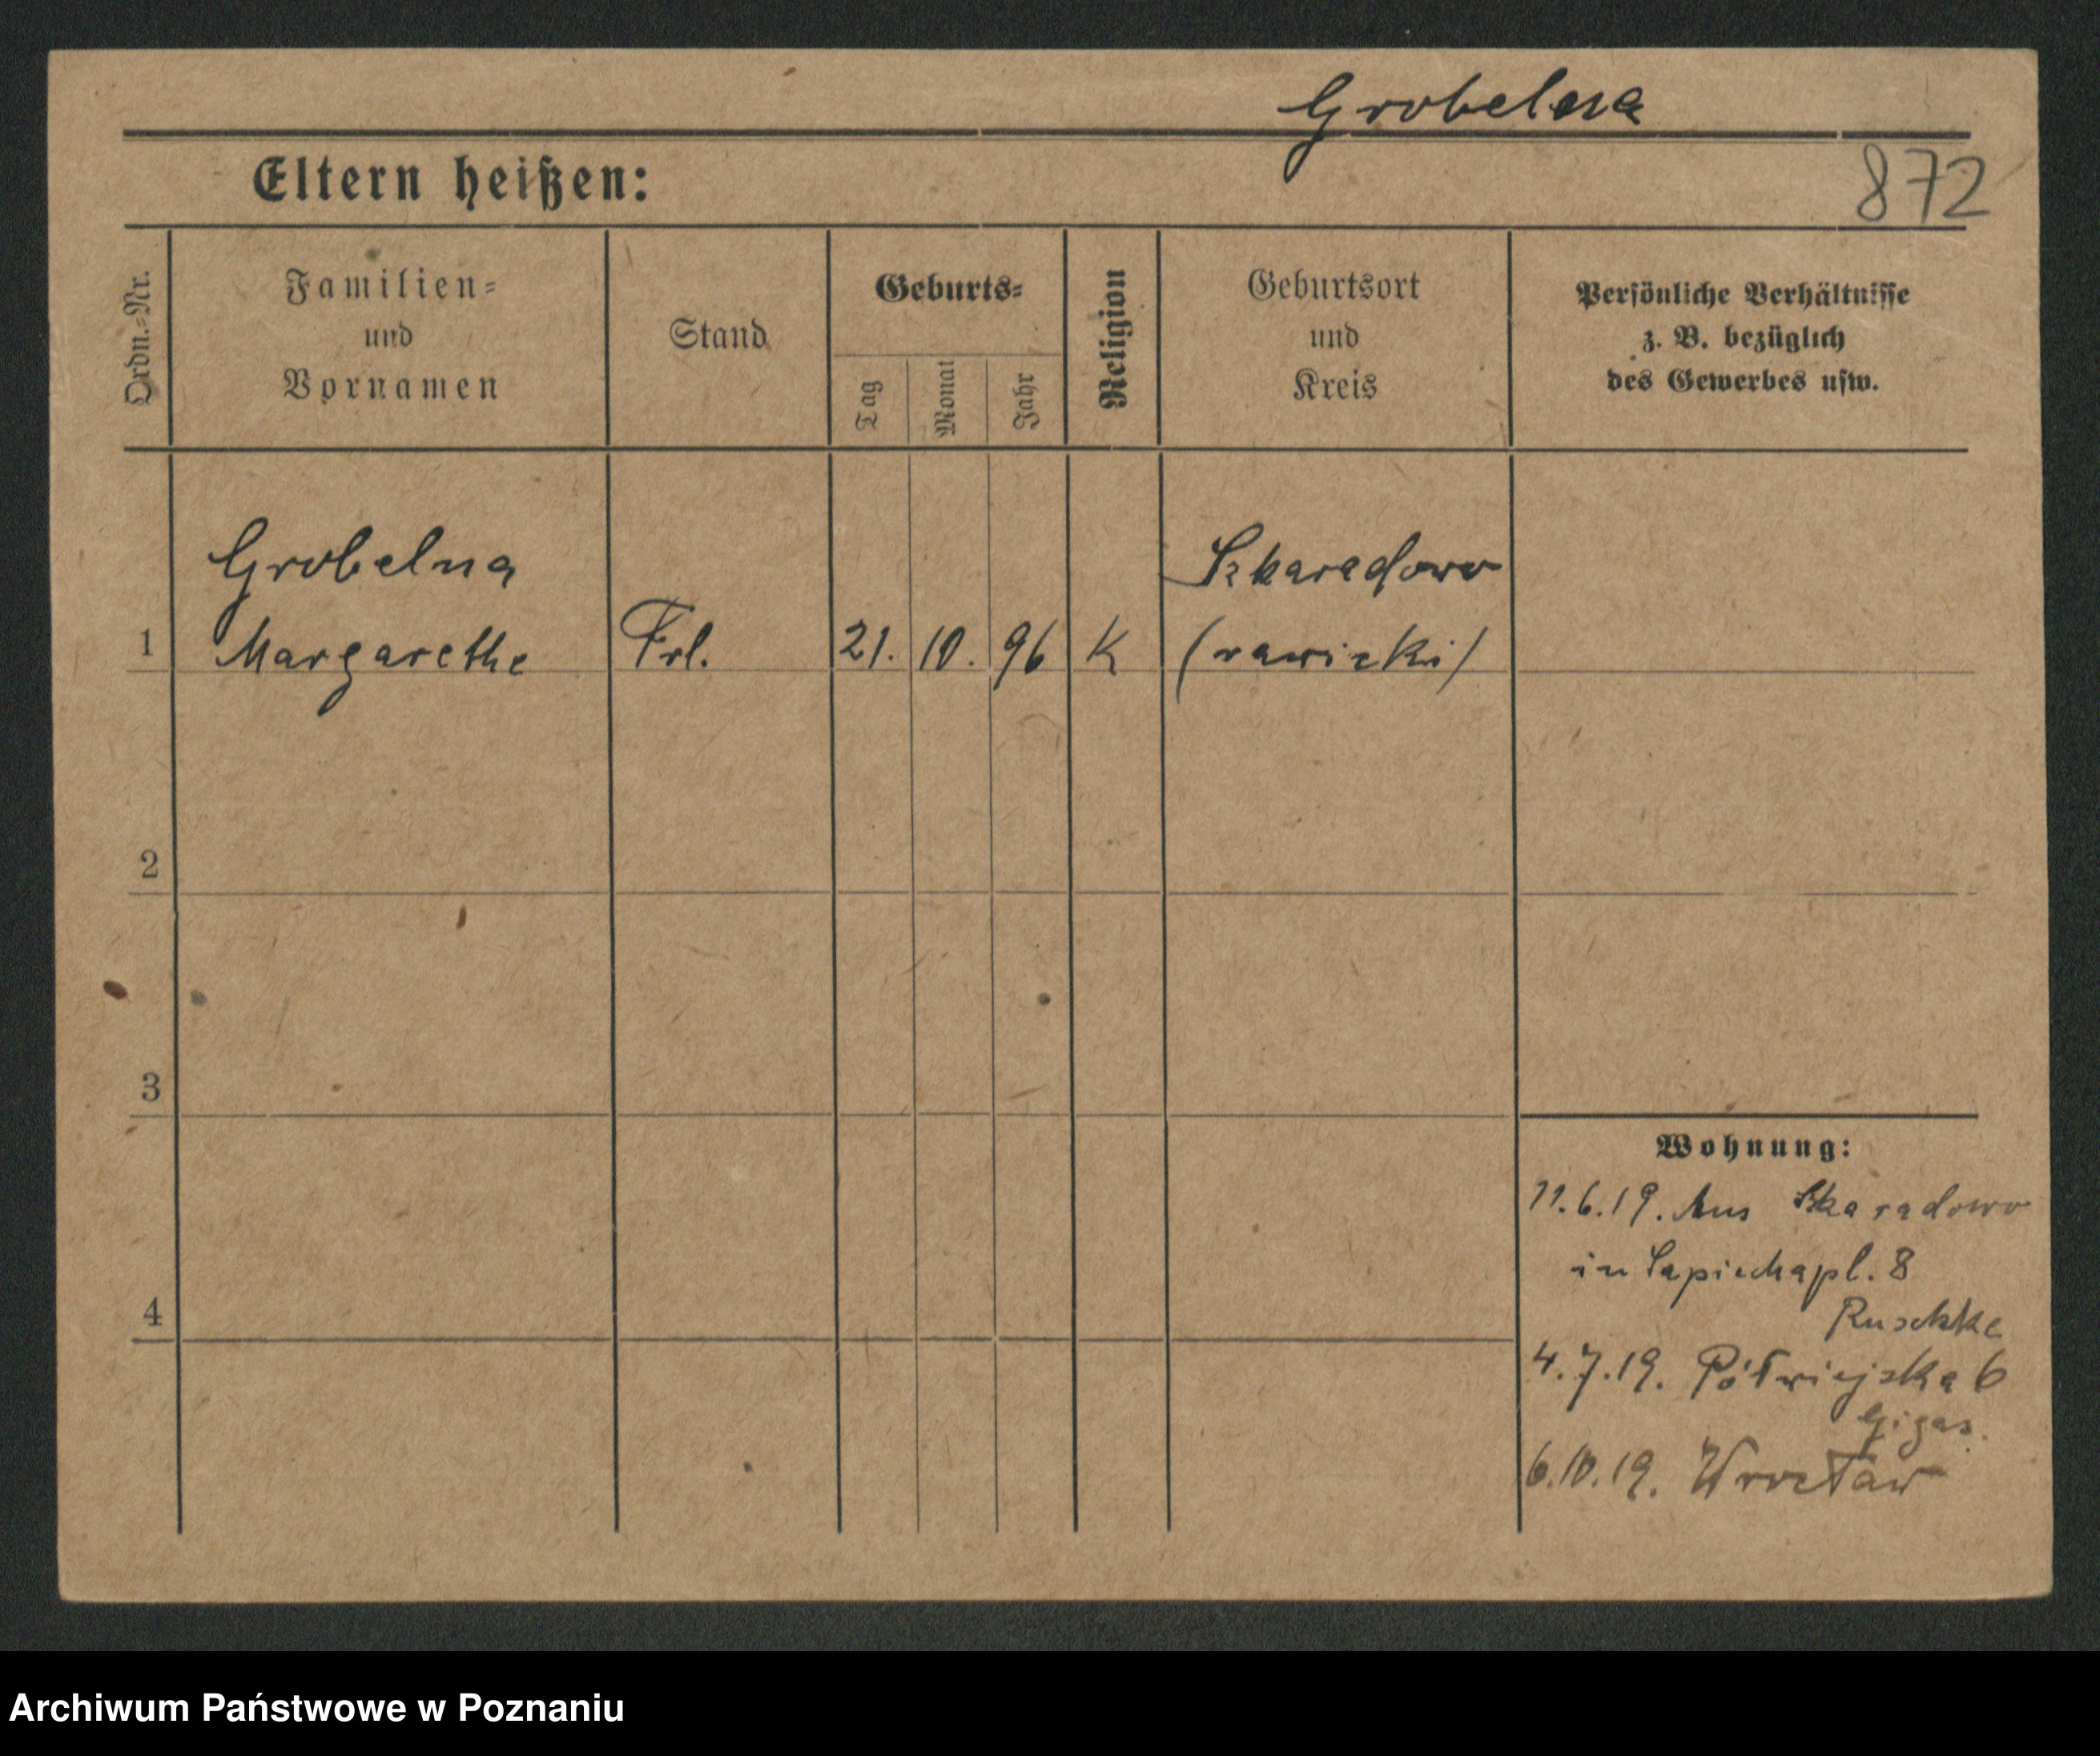 Grobelna
Eltern heißen:
872
Ordn.=Nr.
Familien=
und
Vornamen
Stand
Geburts=
Tag
Monat
Jahr
Religion
Geburtsort
und
Kreis
Persönliche Verhältnisse
z. B. bezüglich
des Gewerbes usw.
Grobelna
Szkaradowo
1 Margarethe Frl. 21. 10. 96 K (rawicki)
2
3
Wohnung:
11.6.19. Aus Skaradowo
in Sapiehapl. 8
4
Ruschke
4.7.19. Półwiejska 6
Gigas.
6.10.19. Wrocław
Archiwum Państwowe w Poznaniu